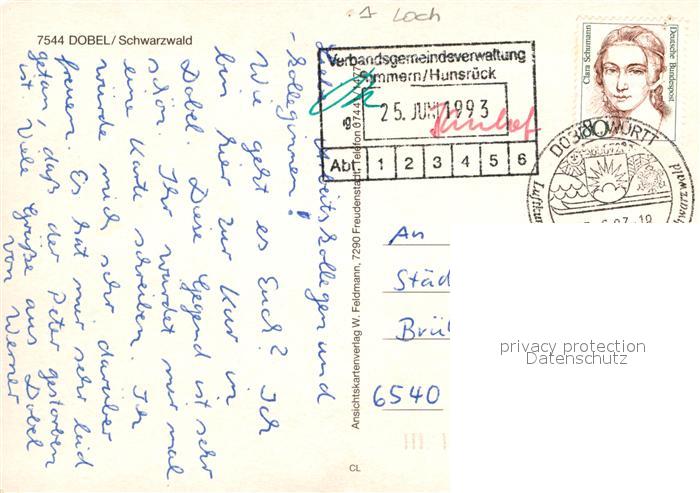 1 Loch
7544 DOBEL/Schwarzwald
Liebe Arbeitskollegen und
-kolleginnen!
Wie geht es Euch? Ich
bin hier zur Kur in
Dobel. Diese Gegend ist sehr
schön. Ihr würdet mir mal
eine Karte schreiben. Ich
würde mich sehr darüber
freuen. Es hat mir sehr leid
getan daß der Peter gestorben
ist. Viele Grüße aus Dobel
von Werner
Ansichtskartenverlag W. Feldmann, 7290 Freudenstadt, Telefon 0744
CL
Verbandsgemeindeverwaltung
Simmern/Hunsrück
25. JUNI 1993
Abt. 1 2 3 4 5 6
Clara Schumann
Deutsche Bundespost
80
DOBEL WÜRTT
Luftkur
An
Städ
Brü
6540
privacy protection
Datenschutz